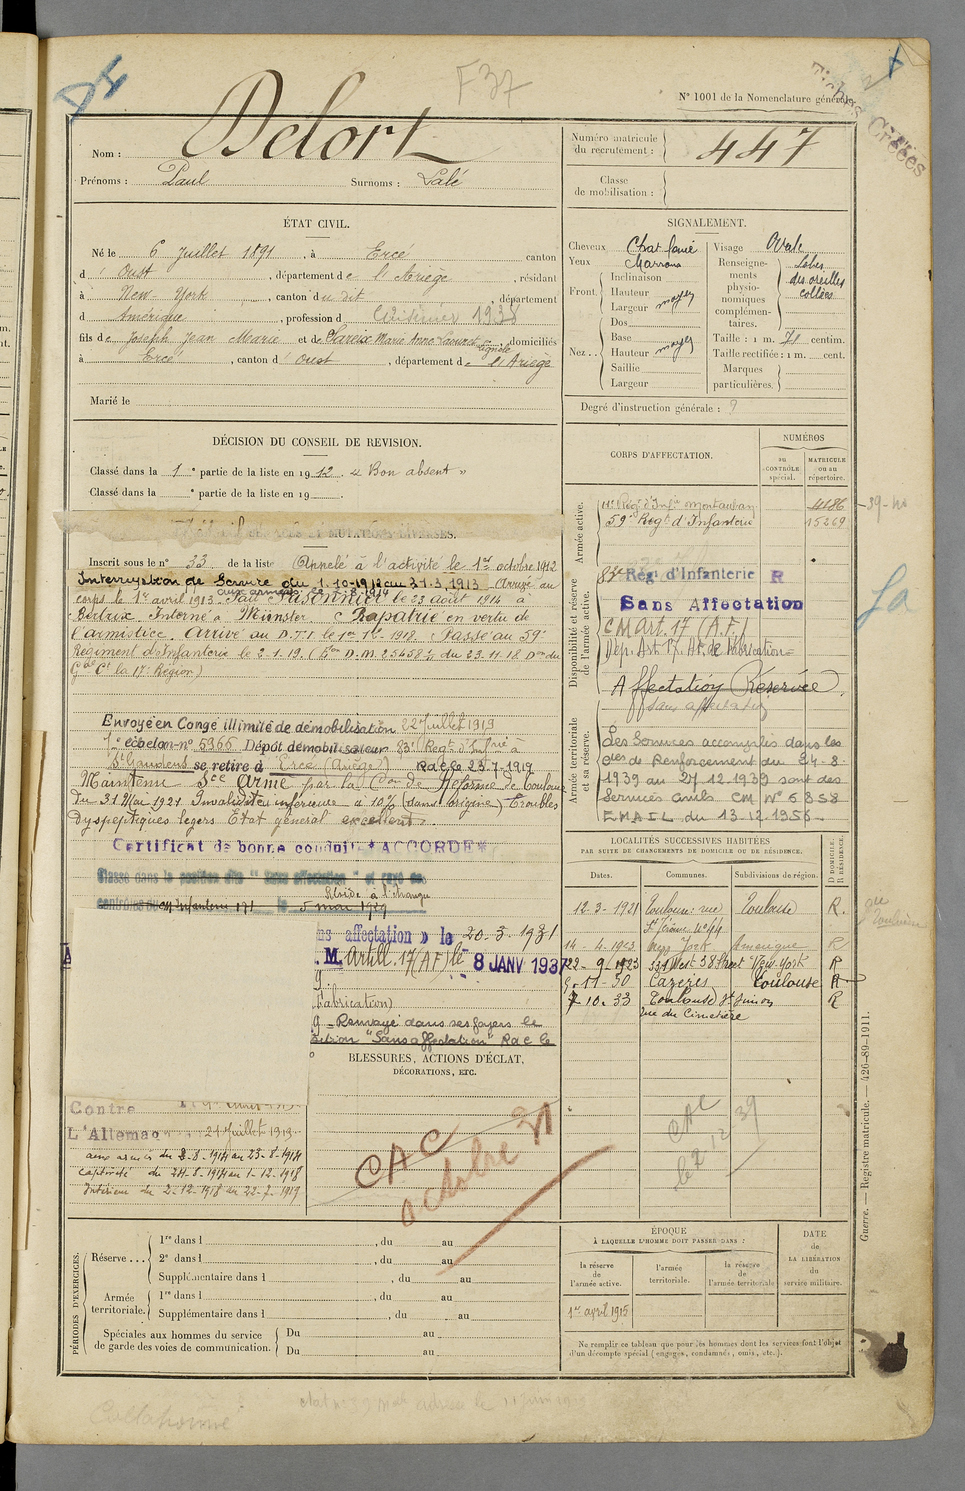 F 37
N° 1001 de la Nomenclature générale.
Fiches Créées
Nom : Delort
Prénoms : Paul Surnoms : Lalé
Numéro matricule du recrutement : 447
Classe de mobilisation :
ÉTAT CIVIL.
Né le 6 Juillet 1891, à Ercé canton
d' Oust, département de l'Ariège, résidant
à New-York, canton du dit, département
d Amérique, profession de Cuisinier 1938
fils de Joseph Jean Marie et de Sareix Marie Anne, domiciliés
à Ercé, canton d' Oust, département de l'Ariège
Marié le
SIGNALEMENT.
Cheveux Chat foncé
Yeux Marrons
Front. Inclinaison
Hauteur moyen
Largeur
Nez.. Dos
Base
Hauteur moyen
Saillie
Largeur
Visage Ovale
Renseignements physionomiques complémentaires. Lobes des oreilles collées
Taille : 1 m. 71 centim.
Taille rectifiée : 1 m. cent.
Marques particulières.
Degré d'instruction générale : ?
DÉCISION DU CONSEIL DE REVISION.
Classé dans la 1e partie de la liste en 1912. « Bon absent »
Classé dans la e partie de la liste en 19
MUTATIONS DIVERSES.
Inscrit sous le n° 33 de la liste Appelé à l'activité le 1er octobre 1912
Interruption de Service du 1-10-1912 au 31-3-1913 Arrivé au
aux armées le
corps le 1er avril 1913 Fait Prisonnier le 23 Août 1914 à
Bertrix Interné à Münster. Rapatrié en vertu de
l'armistice. Arrivé au D.T.I le 1er 1918. Passé au 59e
Régiment d'Infanterie le 2-1-19. (D.M. 25658 du 23.11.18 Don du
Gal Ct la 17e Région)
Envoyé en Congé illimité de démobilisation 22 Juillet 1919
1e échelon n° 5366 Dépôt démobilisateur 83e Regt d'Infrie à
St Gaudens se retire à Ercé (Ariège) RdC le 23.7.1919
Maintenu Sce Armé par la Con de Réforme de Toulouse
du 31 Mai 1921 Invalidité inférieure à 10% (dans origine) Troubles
dyspeptiques légers Etat général excellent.
Certificat de bonne conduite *ACCORDÉ*
Classé dans la position dite "Sans affectation" et rayé des
Réside à l'étranger
contrôles du CM Infanterie 171 le 5 mai 1929
ns affectation » le 20-3-1931
. M. Artill. 17 (A F) le 8 JANV 1937
g
Fabrication)
g - Renvoyé dans ses foyers le
sition "Sans affectation" RdC le
BLESSURES, ACTIONS D'ÉCLAT,
DÉCORATIONS, ETC.
Contre
L'Allemag 21 Juillet 1919
aux armées du 2-8-1914 au 23-8-1914
captivité du 24-8-1914 au 1-12-1918
Intérieur du 2-12-1918 au 22-7-1919
CAC
octobre 31
CORPS D'AFFECTATION.
NUMÉROS
au CONTRÔLE spécial.
MATRICULE ou au répertoire.
Armée active.
11e Régt d'Infie Montauban 4186
59e Regt d'Infanterie 15269
39-
Disponibilité et réserve de l'armée active.
83e Régt d'Infanterie R
Sans Affectation
CM Art. 17 (A.F.)
Dép. Art. 17. At. de Fabrication
Affectation Réservée
Sans affectation
Armée territoriale et sa réserve.
Les Services accomplis dans les
Cies de Renforcement du 24-8-
1939 au 27-12-1939 sont des
Services Civils CM N° 6858
EMAIL du 13-12-1956
LOCALITÉS SUCCESSIVES HABITÉES
PAR SUITE DE CHANGEMENTS DE DOMICILE OU DE RÉSIDENCE.
Dates. Communes. Subdivisions de région. D DOMICILE. R RÉSIDENCE.
12-3-1921 Toulouse : rue Toulouse R.
St Jérôme N° 44
14-4-1923 New York Amérique R
22-9-1923 331 West 38 Street New-York R
9-11-30 Cazères Toulouse R
7-10-33 Toulouse St Simon R
Rue du Cimetière
CAC
le 2 12 39
Guerre. — Registre matricule. — 426-89-1911.
PÉRIODES D'EXERCICES.
Réserve...
1re dans l , du au
2e dans l , du au
Supplémentaire dans l , du au
Armée territoriale.
1re dans l , du au
Supplémentaire dans l , du au
Spéciales aux hommes du service de garde des voies de communication.
Du au
Du au
ÉPOQUE
À LAQUELLE L'HOMME DOIT PASSER DANS :
la réserve de l'armée active.
l'armée territoriale.
la réserve de l'armée territoriale
DATE de LA LIBÉRATION du service militaire.
1er avril 1915
Ne remplir ce tableau que pour les hommes dont les services font l'objet
d'un décompte spécial (engagés, condamnés, omis, etc.).